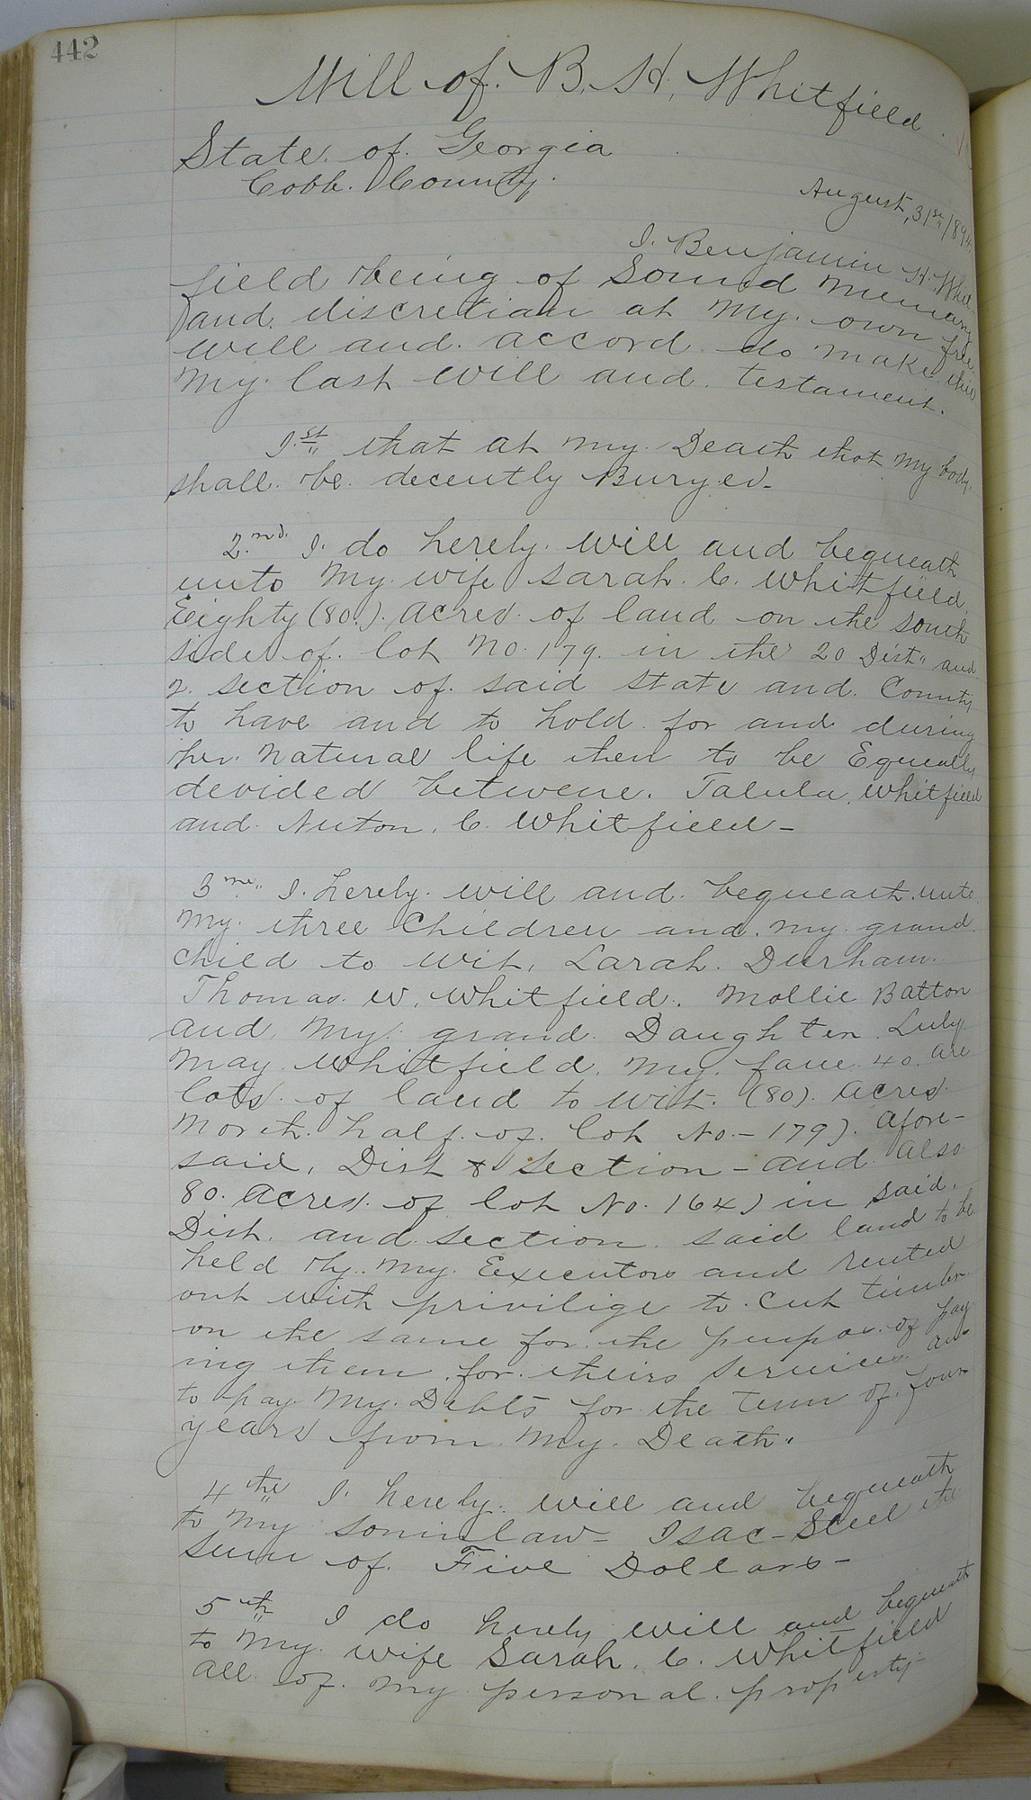 442
Will of. B. H. Whitfield
State. of. Georgia
Cobb. County.
August, 31st, 1894
I. Benjamin H. Whit
field being of Sound memory
and. discretian at my. own free.
will and. accord. do make this
my. last will and. testament.
1.st that at my. Death that my body.
shall. be. decently Buryed-
2.nd. I. do hereby. will and bequeath
unto my. wife Sarah. C. Whitfield,
Eeighty (80.). acres. of land on the south
side of. lot No. 179. in the 20 Dist. and
2. section of. said state and. County
to have and to hold. for and during
her. natural life then to be Equally
devided betwene. Talula. Whitfield
and. Nuton. C. Whitfield-
3 I. hereby. will and. bequeath. unto
my. three Children and. my. grand.
child to wit, Sarah. Durham.
Thomas. W. Whitfield. Mollie Batton
and. my. grand. Daughter. Luly
May. Whitfield. my. four. 40. are
lots. of land to wit. (80). acres.
North. half. of. lot No.- 179). afore-
said, Dist & Section - and also
80. acres. of lot No. 164) in said.
Dist. and. section. said land to be
held by. my. Executors and rented
out with privilige to. cut timber.
on the same for. the purpos. of pay
ing them. for. theirs services and
to pay. my. Debts for the term of. four
years from. my. Death.
4 the I. hereby. will and bequeath
to my soninlaw- Isac- Steel the
sum of. Five Dollars-
5 th I do hereby will and bequeath
to my. wife Sarah. C. Whitfield
all. of. my. personal. property-